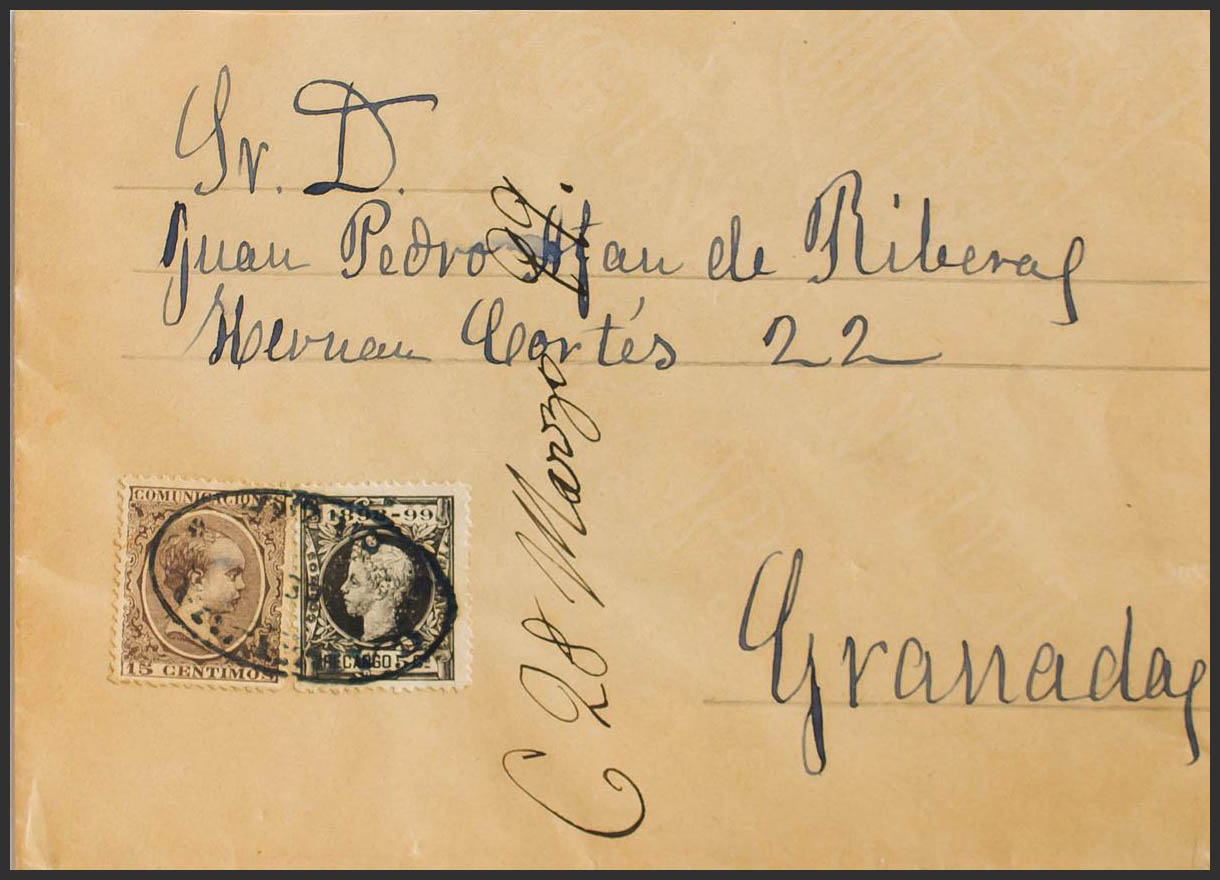 Sr. D.
Juan Pedro Afan de Ribera
Hernan Cortés 22
Granada
C 28 Marzo 99.
COMUNICACIONES
15 CENTIMOS
1898-99
RECARGO 5 Cs